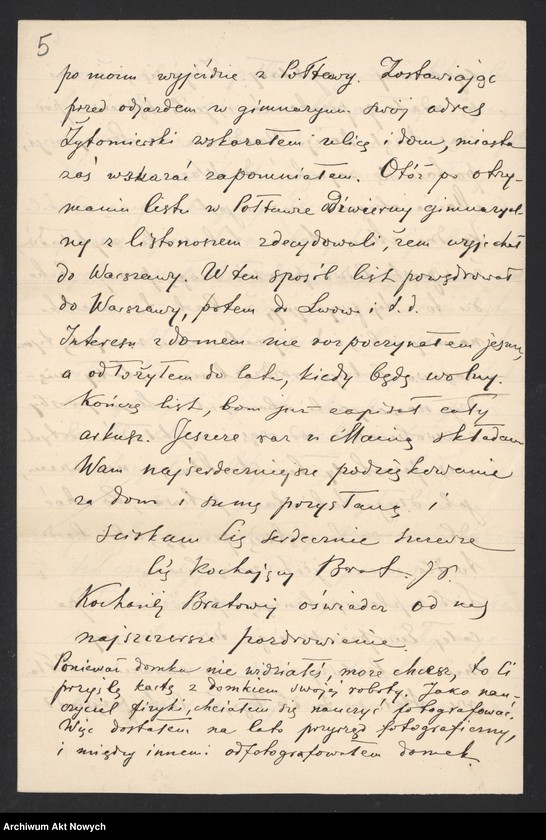 5
po moim wyjeździe z Połtawy. Zostawiając
przed odjazdem w gimnazyum swój adres
Żytomierski wskazałem ulicę i dom, miasta
zaś wskazać zapomniałem. Otóż po otrzy-
maniu listu w Połtawie Dźwierny gimnazyal-
ny z listonoszem zdecydowali, żem wyjechał
do Warszawy. W ten sposób list powędrował
do Warszawy, potem do Lwowa i t. d.
Interesu z domem nie rozpoczynałem jeszcze,
a odłożyłem do lata, kiedy będę wolny.
Kończę list, bom już zapisał cały
arkusz. Jeszcze raz z Manią składam
Wam najserdeczniejsze podziękowanie
za dom i sumę przysłaną i
ściskam Cię serdecznie szczerze
Cię kochający Brat.
Kochanej Bratowej oświadcz od nas
najszczersze pozdrowienie.
Ponieważ domku nie widziałeś, może chcesz, to Ci
przyślę kartę z domkiem swojej roboty. Jako nau-
czyciel fizyki, chciałem się nauczyć fotografować.
Więc dostałem na lato przyrząd fotograficzny,
i między innemi odfotografowałem domek.
Archiwum Akt Nowych